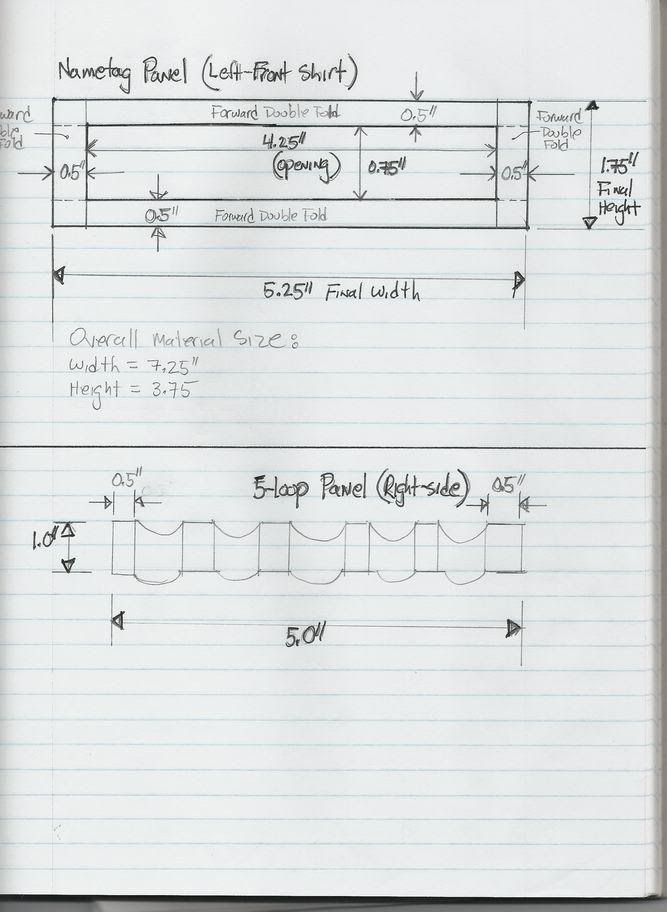 Nametag Panel (Left-Front Shirt)
Forward Double Fold
0.5"
Fold
Forward
Double
Fold
4.25"
(opening)
0.75"
0.5"
0.5"
1.75"
Final
Height
0.5"
Forward Double Fold
5.25" Final Width
Overall Material Size:
Width = 7.25"
Height = 3.75
0.5"
5-loop Panel (Right-side)
0.5"
1.0"
5.0"